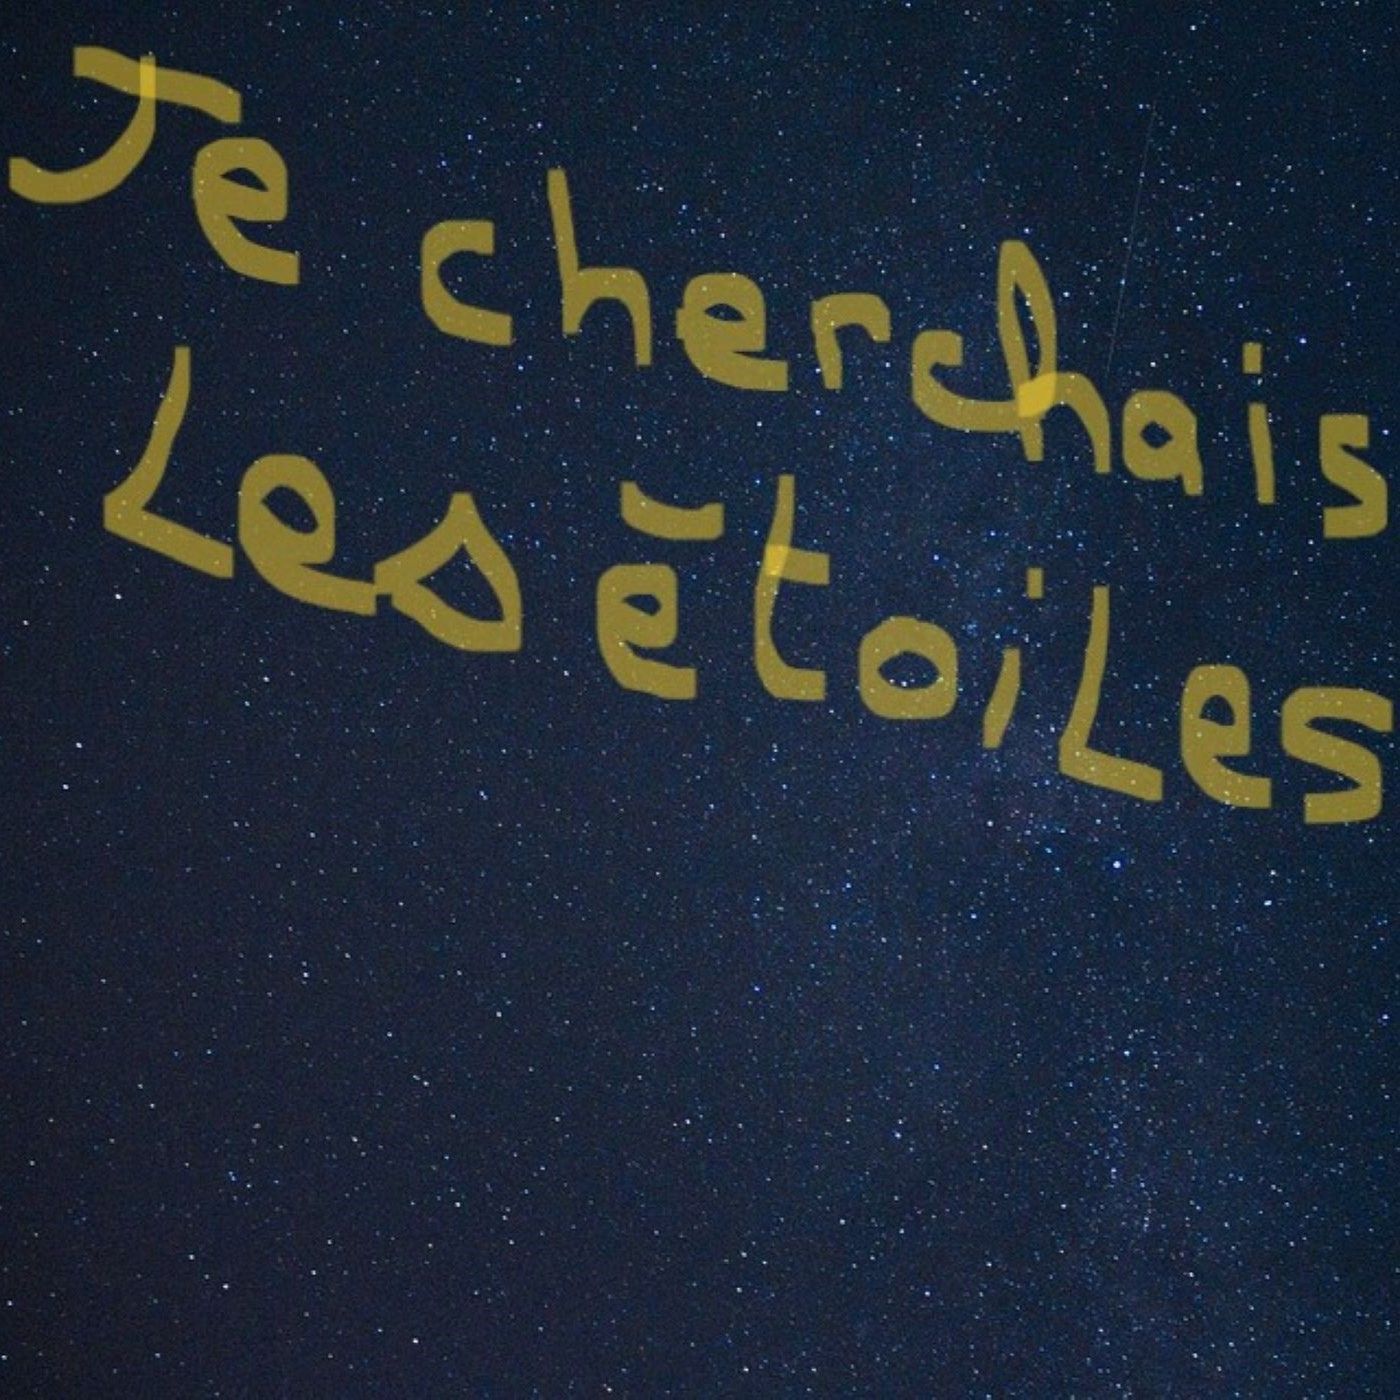 Je cherchais
Les étoiles